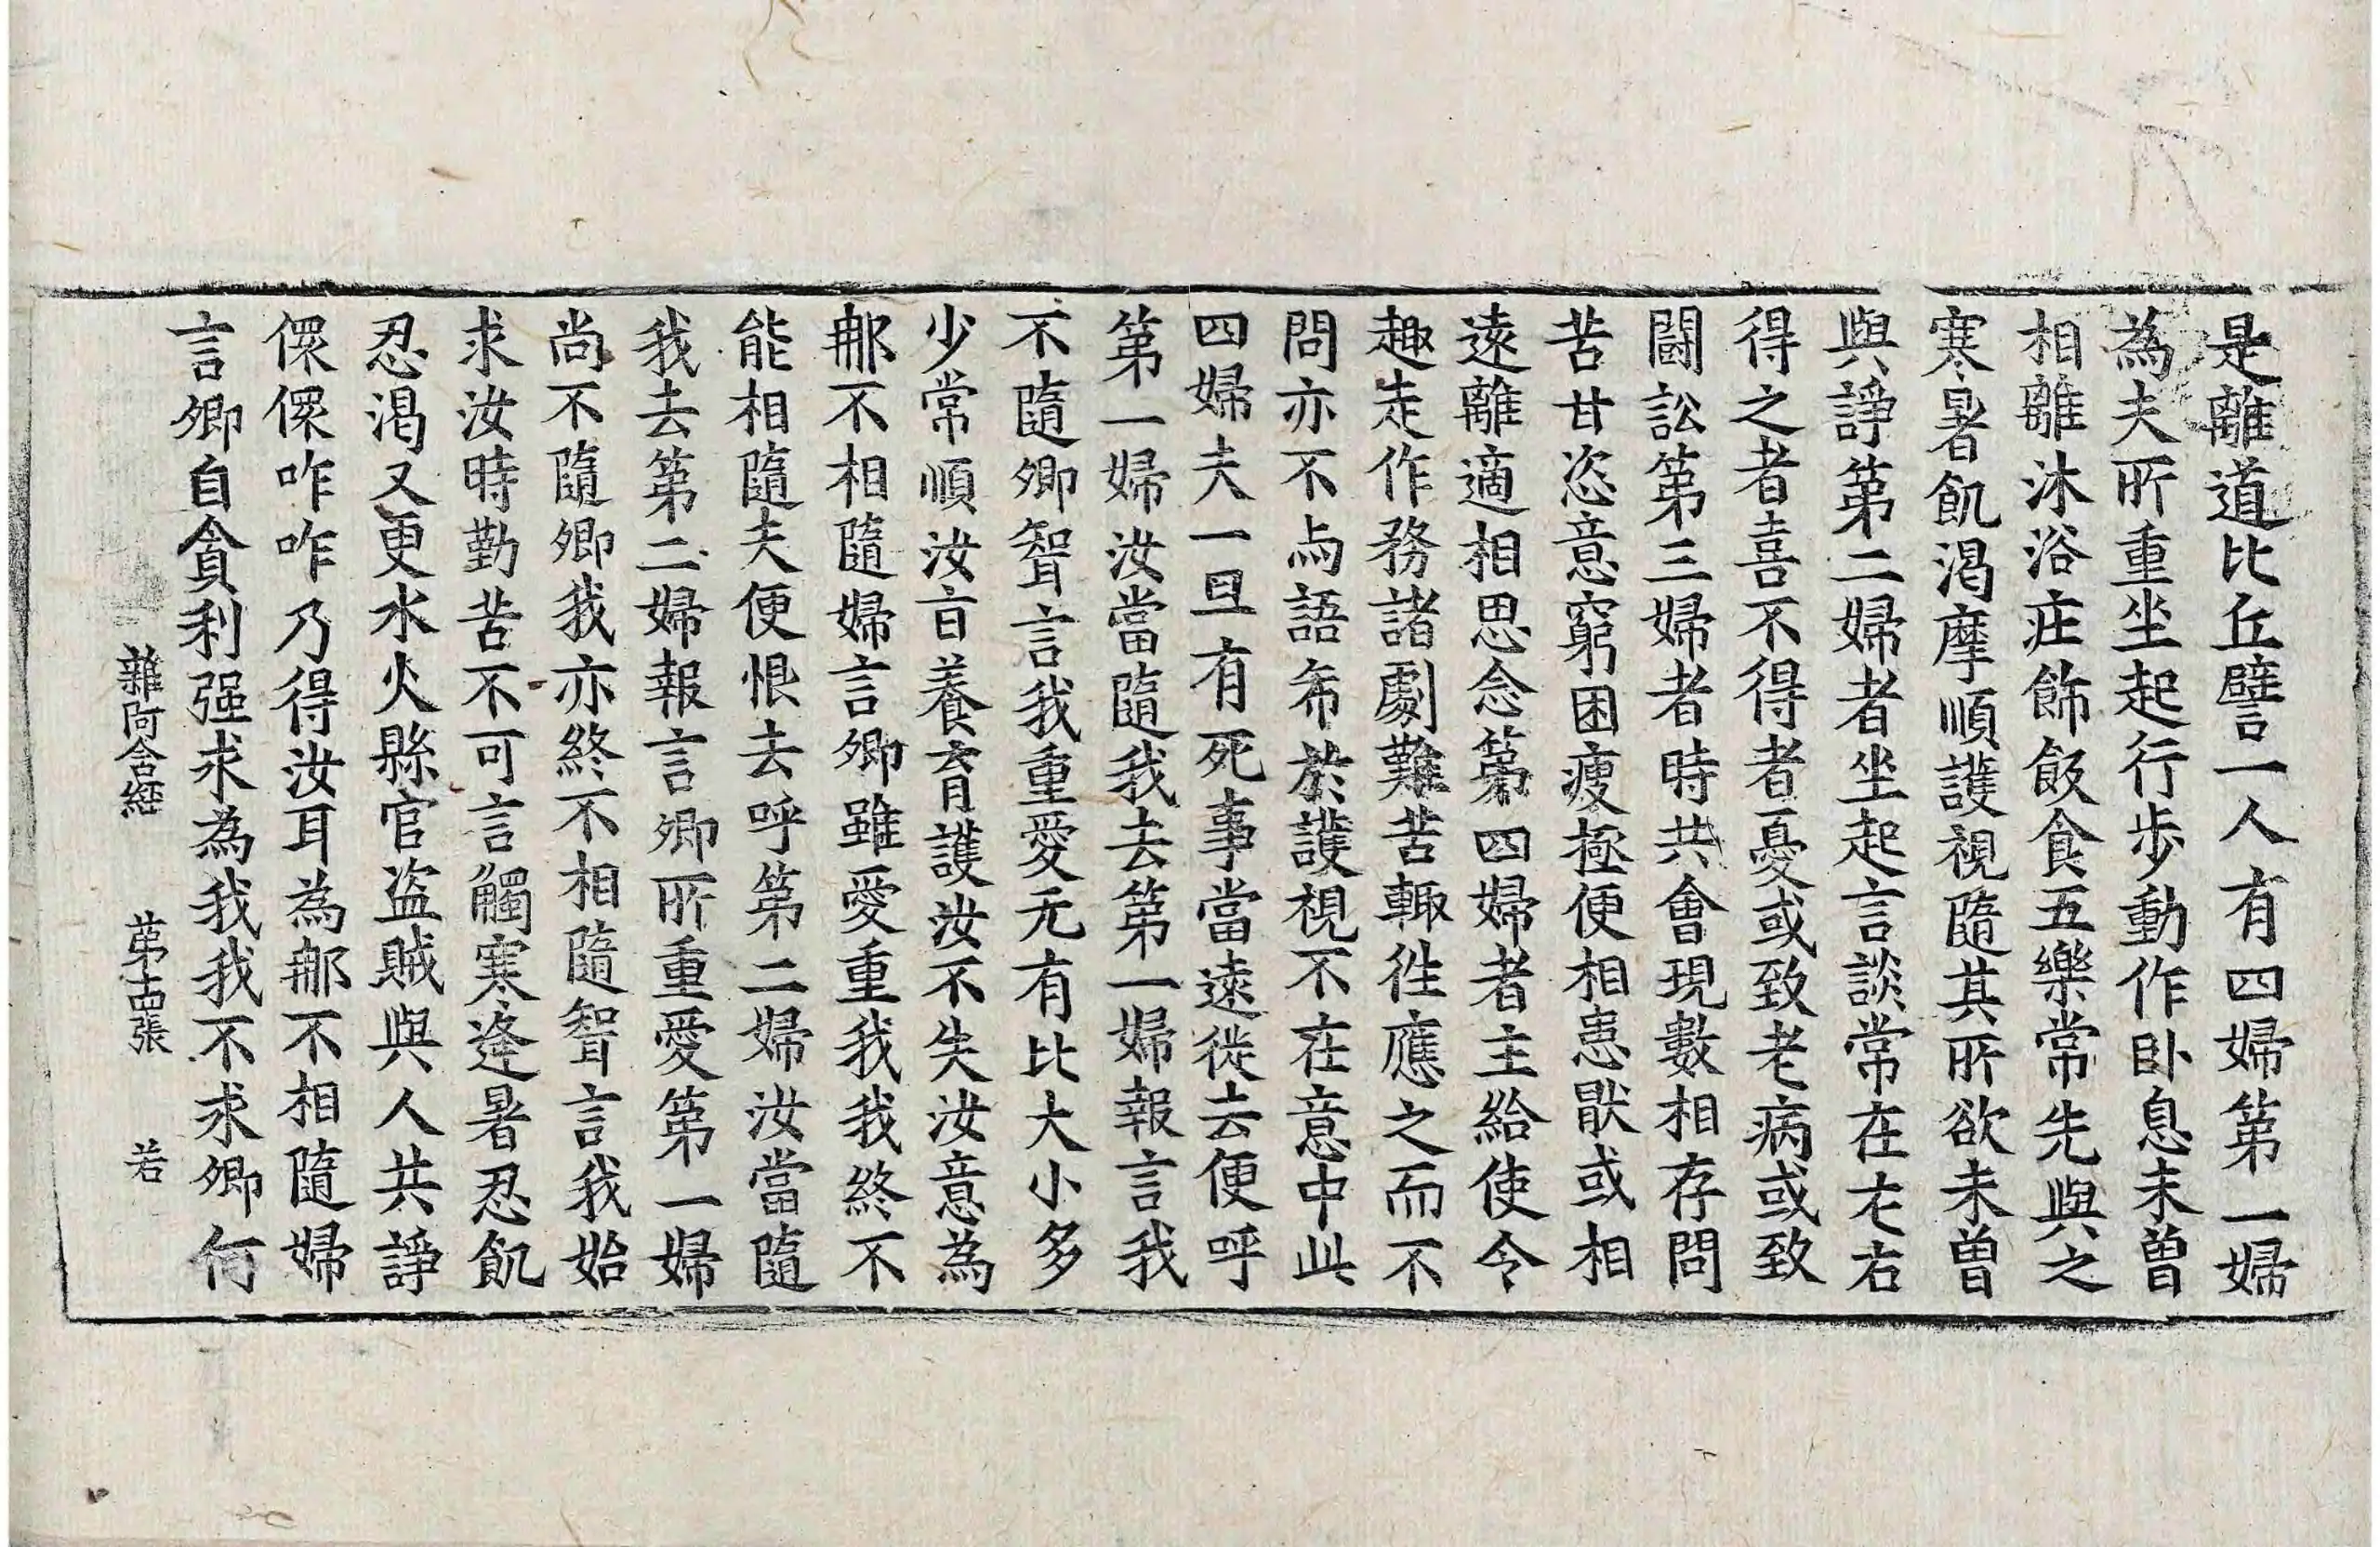 是離道比丘譬一人有四婦第一婦
為夫所重坐起行步動作卧息未曾
相離沐浴㽵飾飯食五樂常先與之
寒暑飢渴摩順護視隨其所欲未曾
與諍第二婦者坐起言談常在左右
得之者喜不得者憂或致老病或致
闘訟第三婦者時共會現數相存問
苦甘恣意窮困瘦極便相患猒或相
遠離適相思念第四婦者主給使令
趣走作務諸劇難苦輙往應之而不
問亦不与語希於護視不在意中此
四婦夫一旦有死事當遠徙去便呼
第一婦汝當隨我去第一婦報言我
不隨卿聟言我重愛无有比大小多
少常順汝㫖養育護汝不失汝意為
那不相隨婦言卿雖愛重我我終不
能相隨夫便恨去呼第二婦汝當隨
我去第二婦報言卿所重愛第一婦
尚不隨卿我亦終不相隨聟言我始
求汝時勤苦不可言觸寒逢暑忍飢
忍渴又更水火縣官盗賊與人共諍
儏儏咋咋乃得汝耳為那不相隨婦
言卿自貪利强求為我我不求卿何
雜阿含經 苐十四張 若